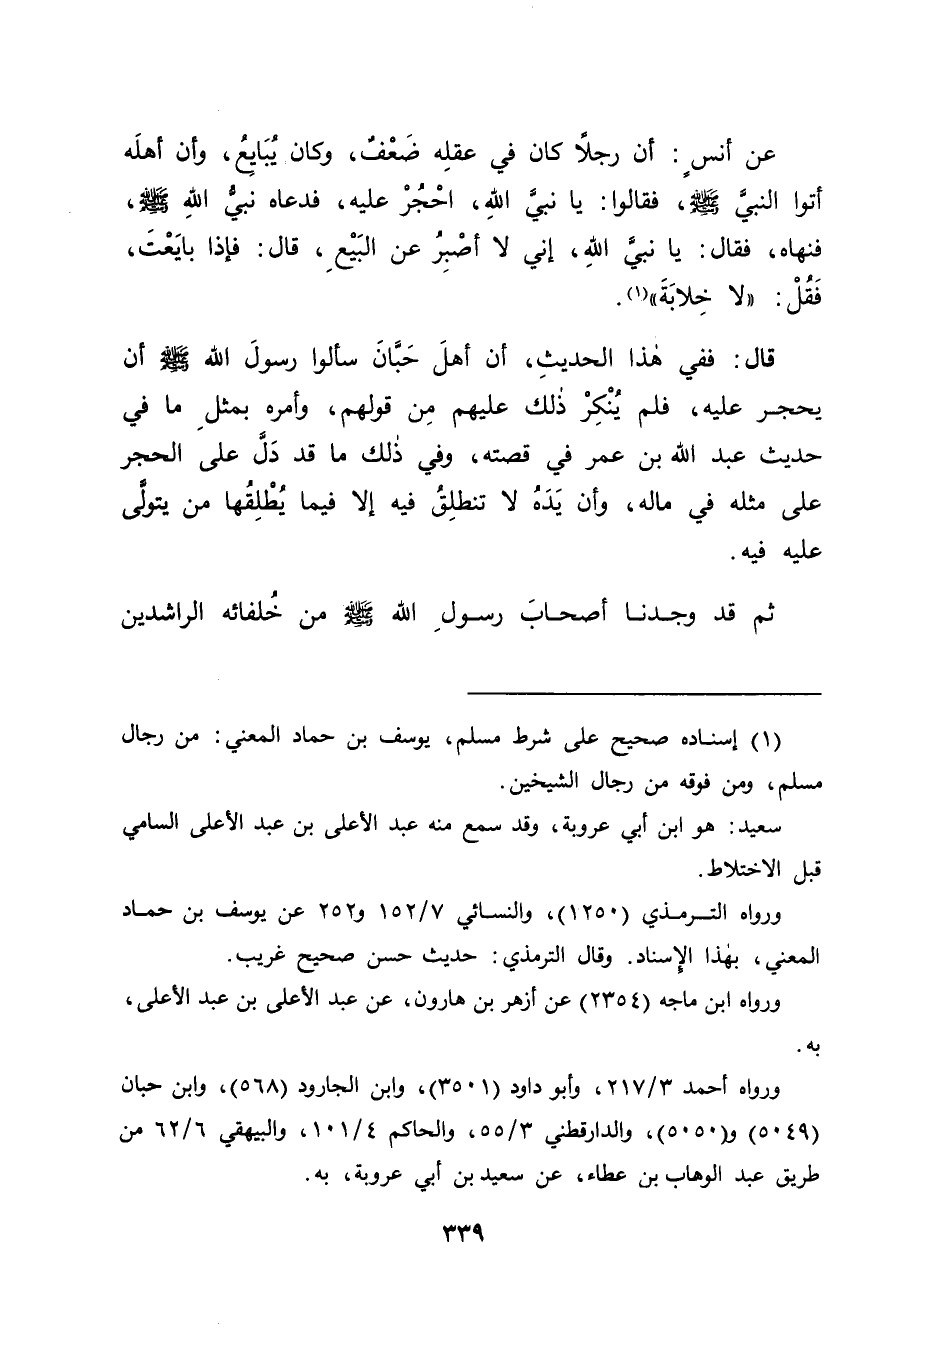 عن أنسٍ: أن رجلًا كان في عقلِه ضَعْفٌ، وكان يُبَايِعُ، وأن أهلَه
أتوا النبيَّ ﷺ، فقالوا: يا نبيَّ اللهِ، احْجُرْ عليه، فدعاه نبيُّ اللهِ ﷺ،
فنهاه، فقال: يا نبيَّ اللهِ، إني لا أصْبِرُ عن البَيْعِ، قال: فإذا بايَعْتَ،
فَقُلْ: «لا خِلابَةَ»(١).
قال: ففي هٰذا الحديثِ، أن أهلَ حَبَّانَ سألوا رسولَ الله ﷺ أن
يحجر عليه، فلم يُنْكِرْ ذٰلك عليهم مِن قولهم، وأمره بمثلِ ما في
حديث عبد الله بن عمر في قصته، وفي ذٰلك ما قد دَلَّ على الحجر
على مثله في ماله، وأن يَدَهُ لا تنطلِقُ فيه إلا فيما يُطْلِقُها من يتولَّى
عليه فيه.
ثم قد وجدنا أصحابَ رسولِ الله ﷺ من خُلفائه الراشدين
(١) إسناده صحيح على شرط مسلم، يوسف بن حماد المعني: من رجال
مسلم، ومن فوقه من رجال الشيخين.
سعيد: هو ابن أبي عروبة، وقد سمع منه عبد الأعلى بن عبد الأعلى السامي
قبل الاختلاط.
ورواه الترمذي (١٢٥٠)، والنسائي ١٥٢/٧ و٢٥٢ عن يوسف بن حماد
المعني، بهٰذا الإسناد. وقال الترمذي: حديث حسن صحيح غريب.
ورواه ابن ماجه (٢٣٥٤) عن أزهر بن هارون، عن عبد الأعلى بن عبد الأعلى،
به.
ورواه أحمد ٢١٧/٣، وأبو داود (٣٥٠١)، وابن الجارود (٥٦٨)، وابن حبان
(٥٠٤٩) و(٥٠٥٠)، والدارقطني ٥٥/٣، والحاكم ١٠١/٤، والبيهقي ٦٢/٦ من
طريق عبد الوهاب بن عطاء، عن سعيد بن أبي عروبة، به.
٣٣٩